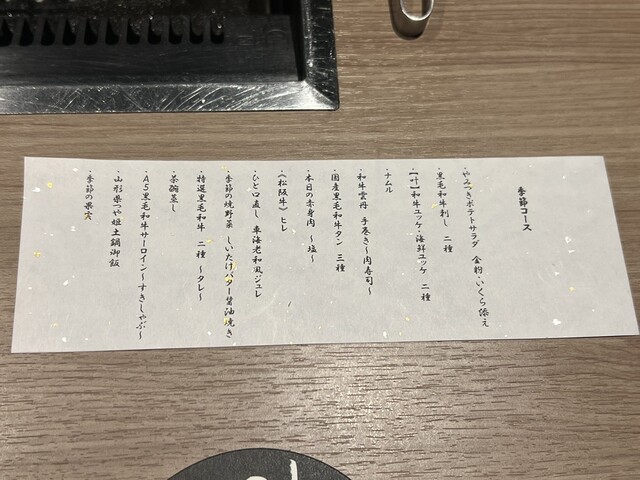 季節コース
・やみつきポテトサラダ 金粉・いくら添え
・黒毛和牛刺し 二種
・【叶】和牛ユッケ・海鮮ユッケ 二種
・ナムル
・和牛雲丹 手巻き~肉寿司~
・国産黒毛和牛タン 三種
・本日の赤身肉 ~塩~
・《松阪牛》ヒレ
・ひと口直し 車海老和風ジュレ
・季節の焼野菜 しいたけバター醤油焼き
・特選黒毛和牛 二種 ~タレ~
・茶碗蒸し
・A5黒毛和牛サーロイン~すきしゃぶ~
・山形県つや姫土鍋御飯
・季節の果実